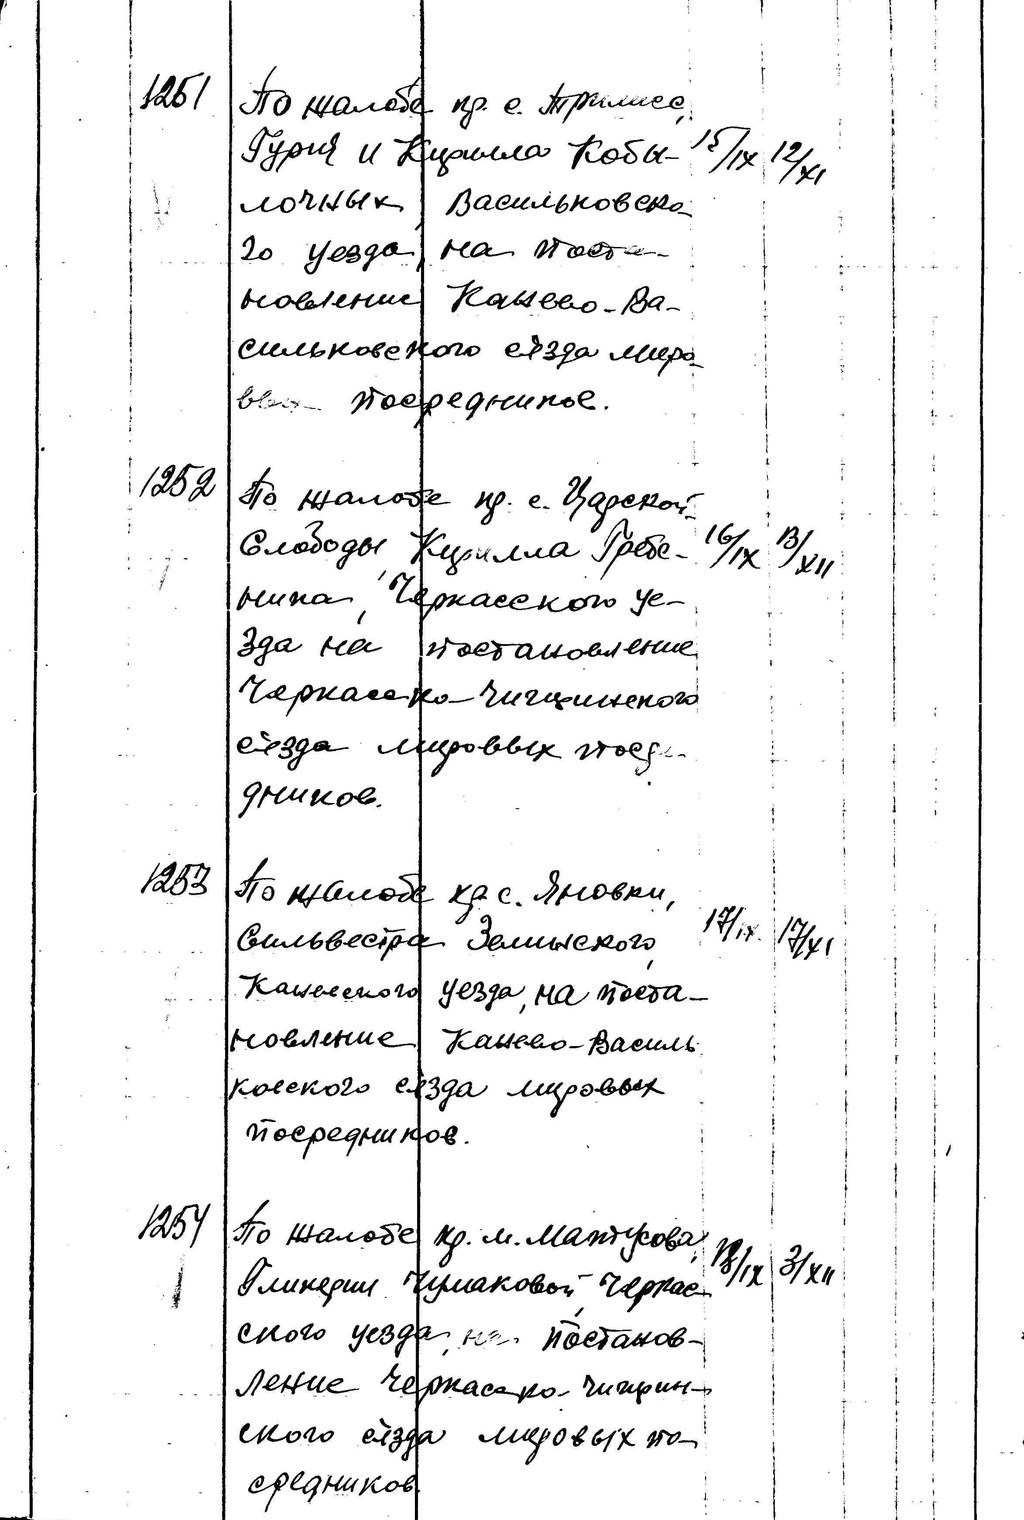 1251 По жалобе кр. с. Трилисс,
Гурия и Кирилла Кобы- 15/IX 12/XI
лочных, Васильковско-
го уезда, на поста-
новление Канево-Ва-
сильковского съезда миро-
вых посредников.
1252 По жалобе кр. с. Царской-
Слободы, Кирилла Гребе- 16/IX 13/XII
ника, Черкасского уе-
зда на постановление
Черкасско-Чигиринского
съезда мировых посре-
дников.
1253 По жалобе кр с. Яновки,
Сильвестра Зелинского, 17/IX 17/XI
Каневского уезда, на поста-
новление Канево-Василь
ковского съезда мировых
посредников.
1254 По жалобе кр. м. Матусова,
Гликерии Чумаковой, Черкас- 18/IX 3/XII
ского уезда, на постанов-
ление Черкасско-Чигирин-
ского съезда мировых по-
средников.